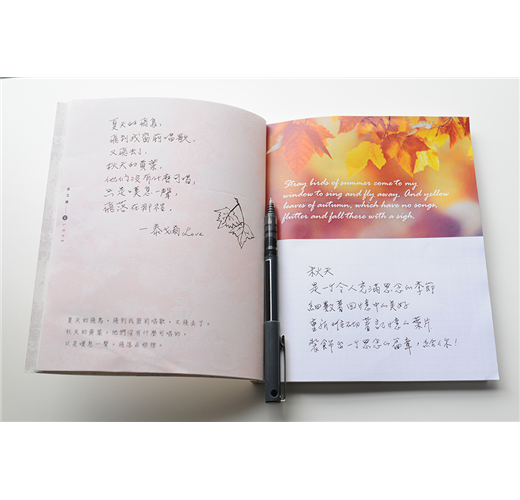 夏天的飛鳥,
飛到我窗前唱歌,
又飛去了。
秋天的黃葉,
他們沒有什麼可唱,
只是嘆息一聲,
飛落在那裡。
—泰戈爾 Love
夏天的飛鳥,飛到我窗前唱歌,又飛去了。
秋天的黃葉,它們沒有什麼可唱的,
只是嘆息一聲,飛落在那裡。
Stray birds of summer come to my
window to sing and fly away. And yellow
leaves of autumn, which have no songs,
flutter and fall there with a sigh.
秋天
是一个令人充滿思念的季節
細數著回憶中的美好
堆砌著記憶的葉片
裝飾出一个思念的窗扉,給你!